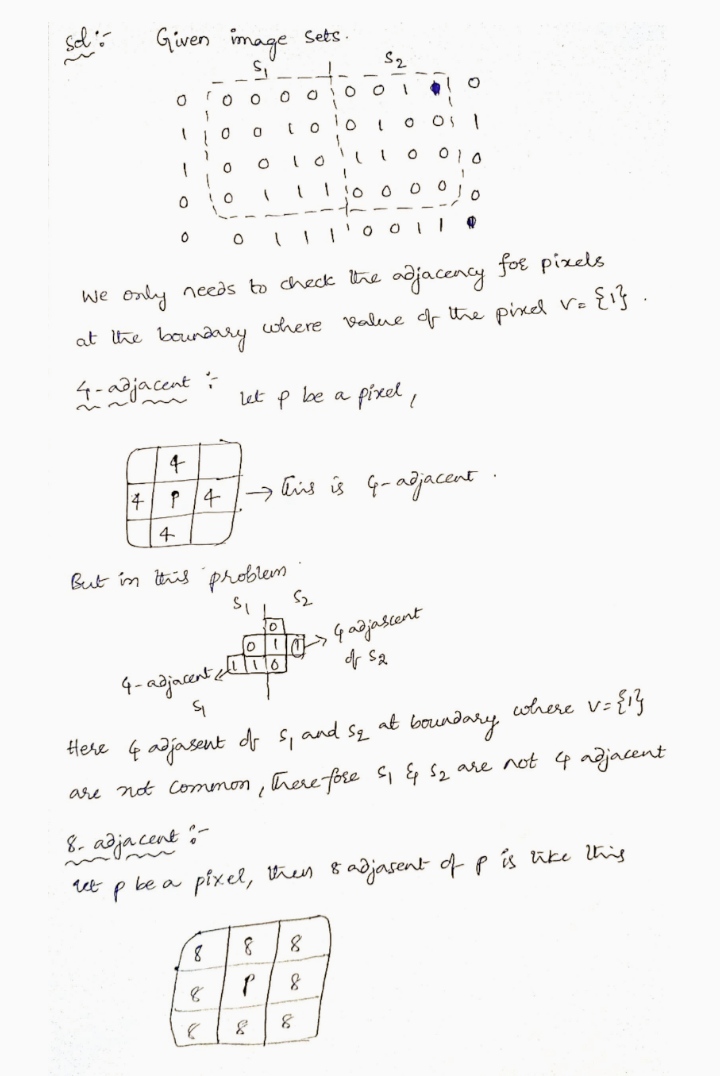 Sol:-  Given image sets.
S1 S2
0 0 0 0 0 0 0 1 0
1 0 0 1 0 0 1 0 0 1
1 0 0 1 0 1 1 0 0 0
0 0 1 1 1 0 0 0 0 0
0 0 1 1 1 0 0 1 1
We only needs to check the adjacency for pixels
at the boundary where value of the pixel V={1}.
4-adjacent :- Let p be a pixel,
4
4 P 4 → This is 4-adjacent.
4
But in this problem
S1 S2
0
0 1 1 → 4 adjascent
of S2
1 1 0
4-adjacent
S1
Here 4 adjasent of S1 and S2 at boundary where V={1}
are not common, therefore S1 & S2 are not 4 adjacent
8-adjacent :-
Let p be a pixel, then 8 adjasent of p is like this
8 8 8
8 P 8
8 8 8